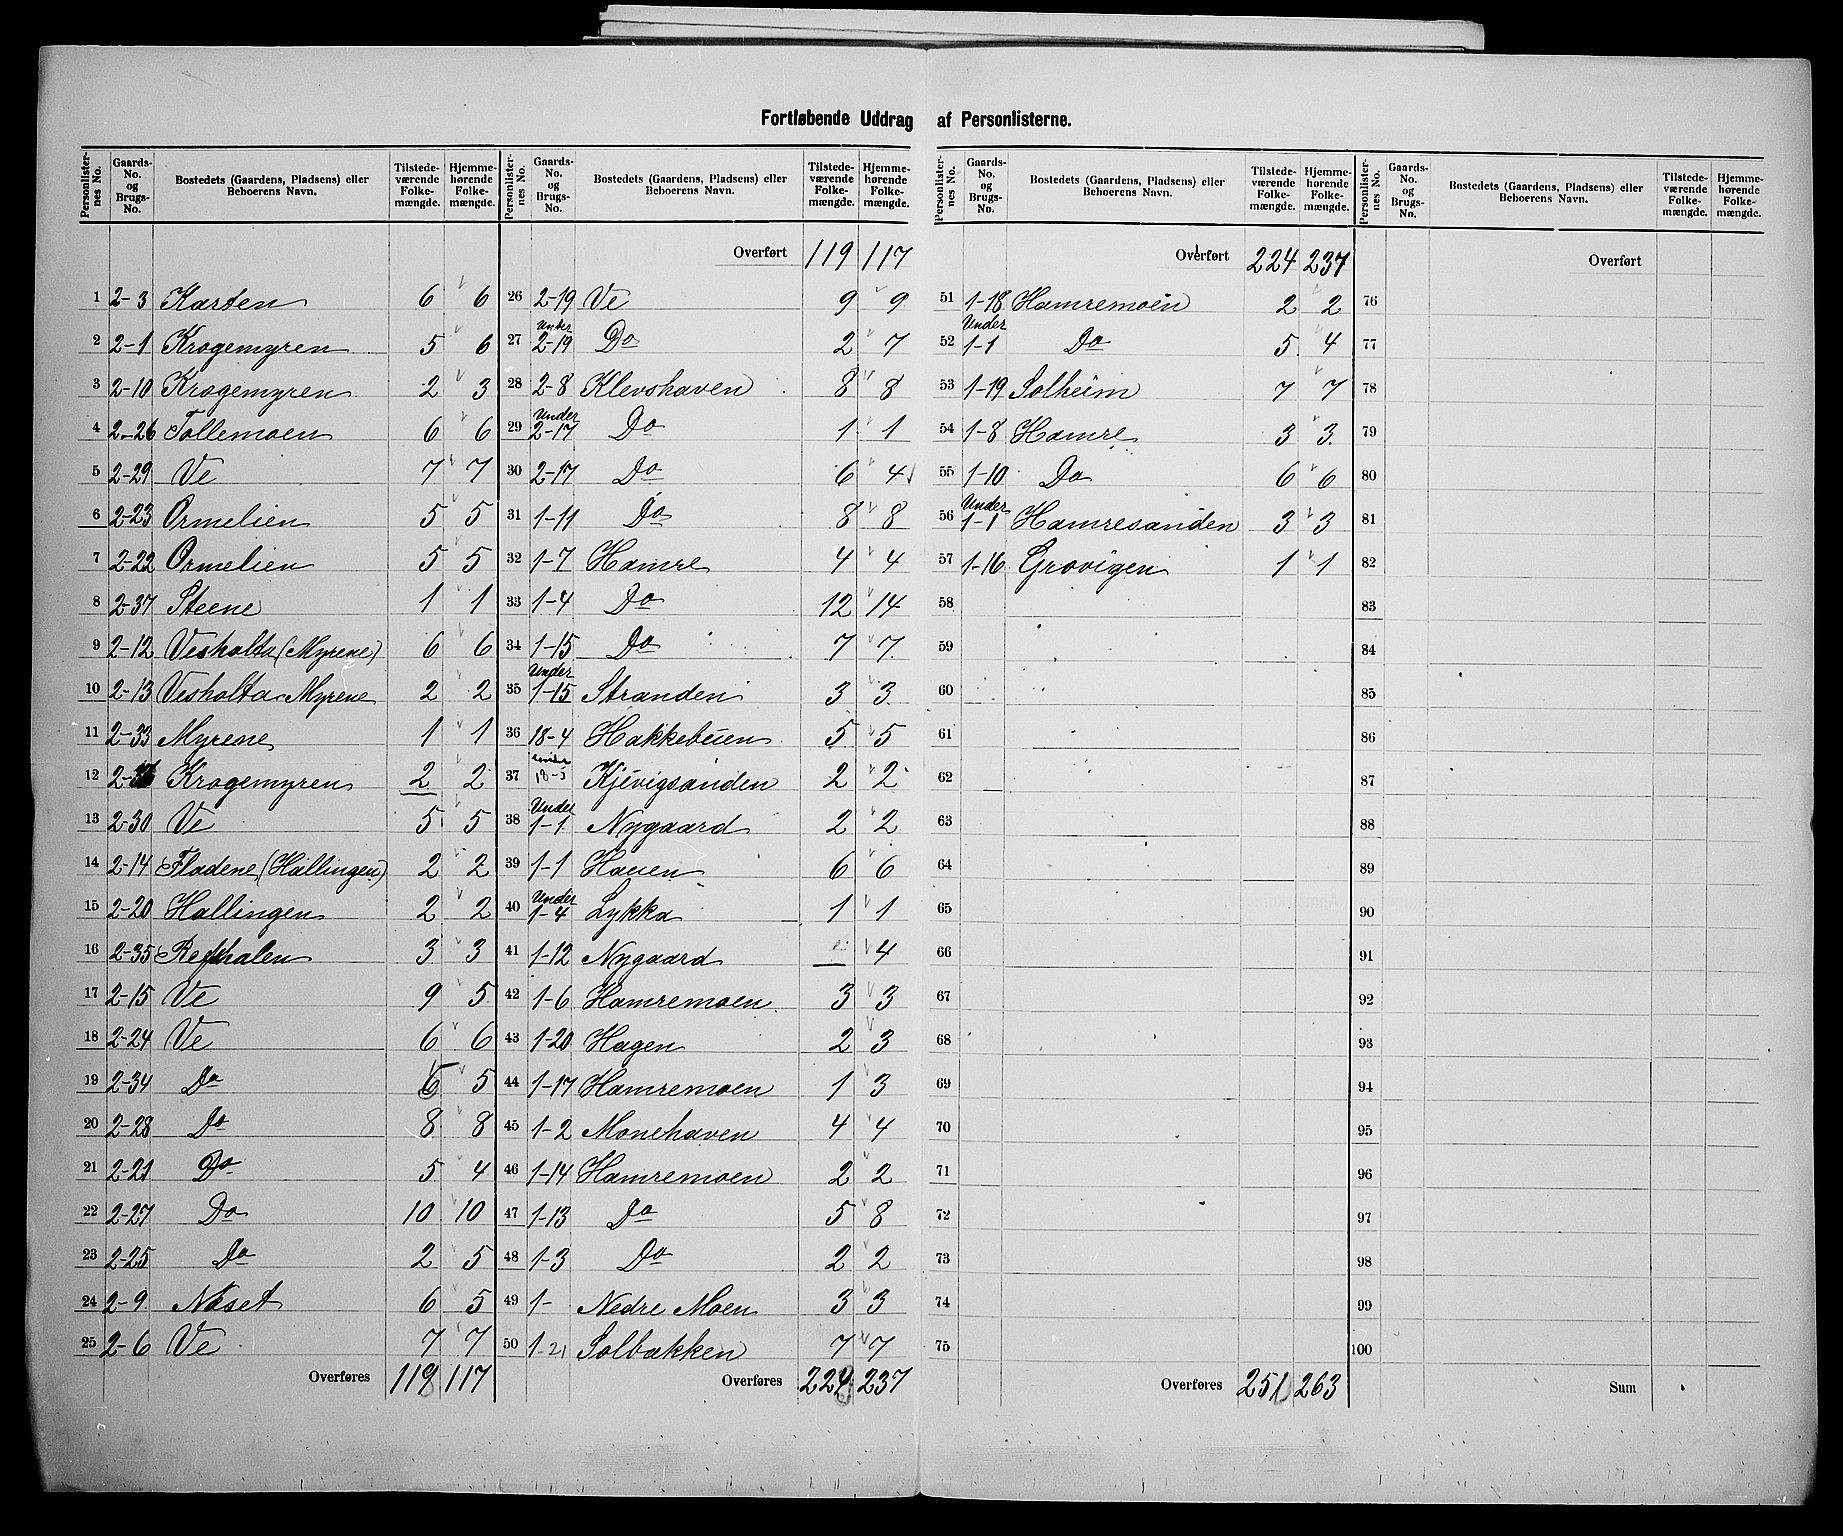 Fortløbende Uddrag af Personlisterne.
Personlister-nes No. | Gaards-No. og Brugs-No. | Bostedets (Gaardens, Pladsens) eller Beboerens Navn. | Tilstede-værende Folke-mængde. | Hjemme-hørende Folke-mængde.
1 2-3 Karten 6 6
2 2-1 Krogemyren 5 6
3 2-10 Krogemyren 2 3
4 2-26 Tollemoen 6 6
5 2-29 Ve 7 7
6 2-23 Ormelien 5 5
7 2-22 Ormelien 5 5
8 2-37 Steene 1 1
9 2-12 Vesholta (Myrene) 6 6
10 2-13 Vesholta Myrene 2 2
11 2-33 Myrene 1 1
12 Krogemyren 2 2
13 2-30 Ve 5 5
14 2-14 Fladene (Hallingen) 2 2
15 2-20 Hallingen 2 2
16 2-35 Refhalen 3 3
17 2-15 Ve 9 5
18 2-24 Ve 6 6
19 2-34 Do 6 5
20 2-28 Do 8 8
21 2-21 Do 5 4
22 2-27 Do 10 10
23 2-25 Do 2 5
24 2-9 Næset 6 5
25 2-6 Ve 7 7
Overføres 119 117
Personlister-nes No. | Gaards-No. og Brugs-No. | Bostedets (Gaardens, Pladsens) eller Beboerens Navn. | Tilstede-værende Folke-mængde. | Hjemme-hørende Folke-mængde.
Overført 119 117
26 2-19 Ve 9 9
27 Under 2-19 Do 2 7
28 2-8 Klevshaven 8 8
29 Under 2-17 Do 1 1
30 2-17 Do 6 4
31 1-11 Do 8 8
32 1-7 Hamre 4 4
33 1-4 Do 12 14
34 1-15 Do 7 7
35 Under 1-15 Stranden 3 3
36 18-4 Hakkebuen 5 5
37 under Kjevigsanden 2 2
38 Under 1-1 Nygaard 2 2
39 1-1 Haven 6 6
40 Under 1-4 Lykka 1 1
41 1-12 Nygaard 4
42 1-6 Hamremoen 3 3
43 1-20 Hagen 2 3
44 1-17 Hamremoen 1 3
45 1-2 Monehaven 4 4
46 1-14 Hamremoen 2 2
47 1-13 Do 5 8
48 1-3 Do 2 2
49 1- Nedre Moen 3 3
50 1-21 Solbakken 7 7
Overføres 224 237
Personlister-nes No. | Gaards-No. og Brugs-No. | Bostedets (Gaardens, Pladsens) eller Beboerens Navn. | Tilstede-værende Folke-mængde. | Hjemme-hørende Folke-mængde.
Overført 224 237
51 1-18 Hamremoen 2 2
52 Under 1-1 Do 5 4
53 1-19 Solheim 7 7
54 1-8 Hamre 3 3
55 1-10 Do 6 6
56 Under 1-1 Hamresanden 3 3
57 1-16 Grovigen 1 1
58
59
60
61
62
63
64
65
66
67
68
69
70
71
72
73
74
75
Overføres 251 263
Personlister-nes No. | Gaards-No. og Brugs-No. | Bostedets (Gaardens, Pladsens) eller Beboerens Navn. | Tilstede-værende Folke-mængde. | Hjemme-hørende Folke-mængde.
Overført
76
77
78
79
80
81
82
83
84
85
86
87
88
89
90
91
92
93
94
95
96
97
98
99
100
Sum